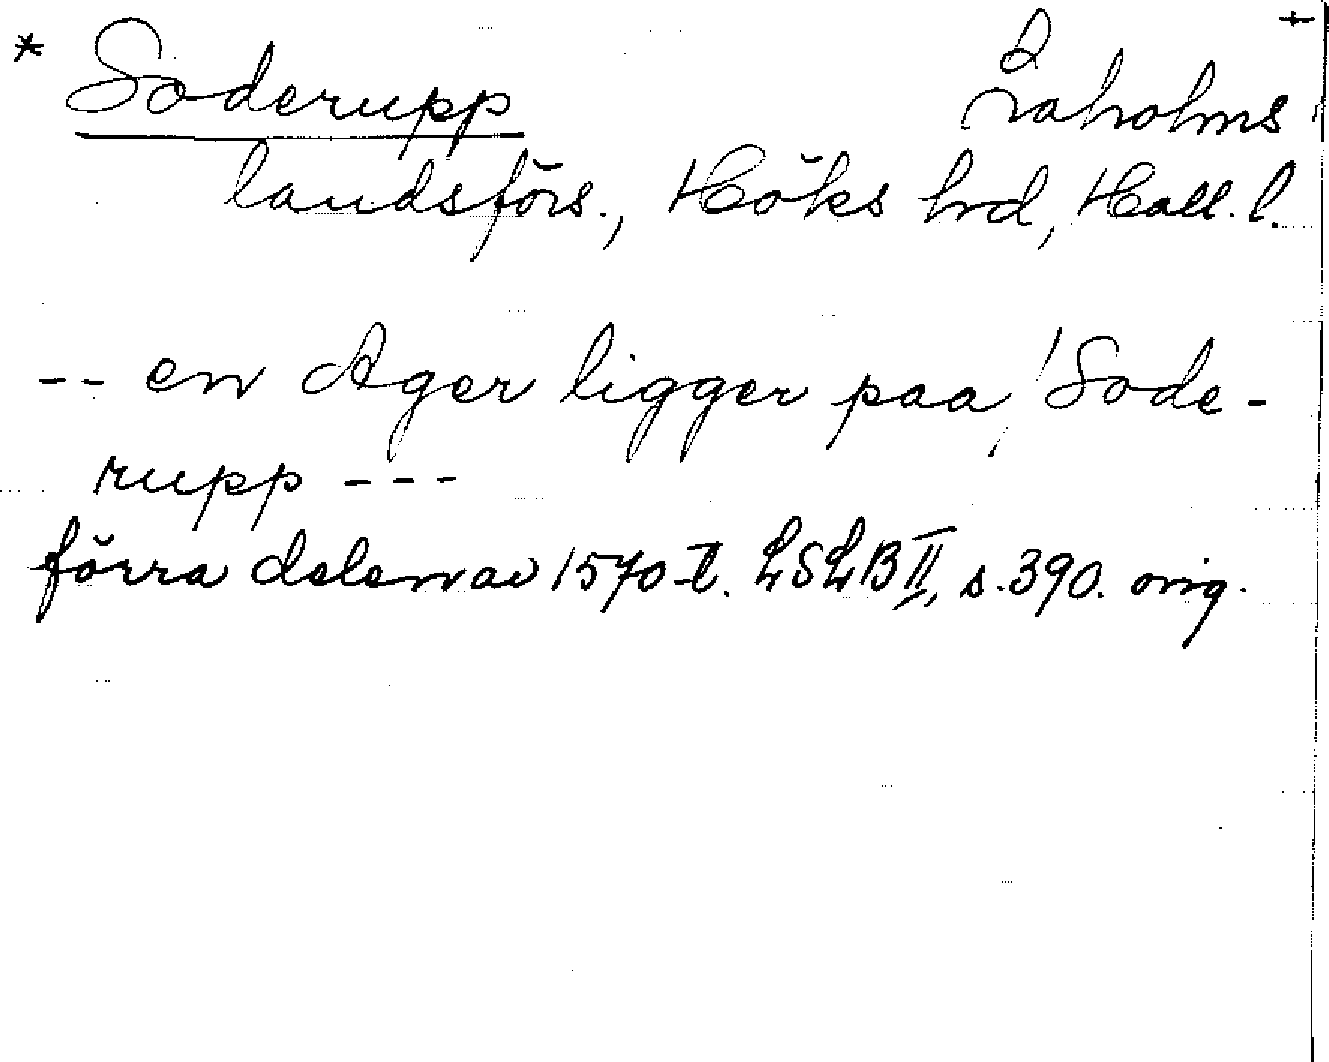 * Soderupp Laholms +
landsförs., Höks hrd, Hall. l.
-- en Ager ligger paa Sode-
rupp ---
förra delen av 1570-t. LSLB II, s. 390. orig.